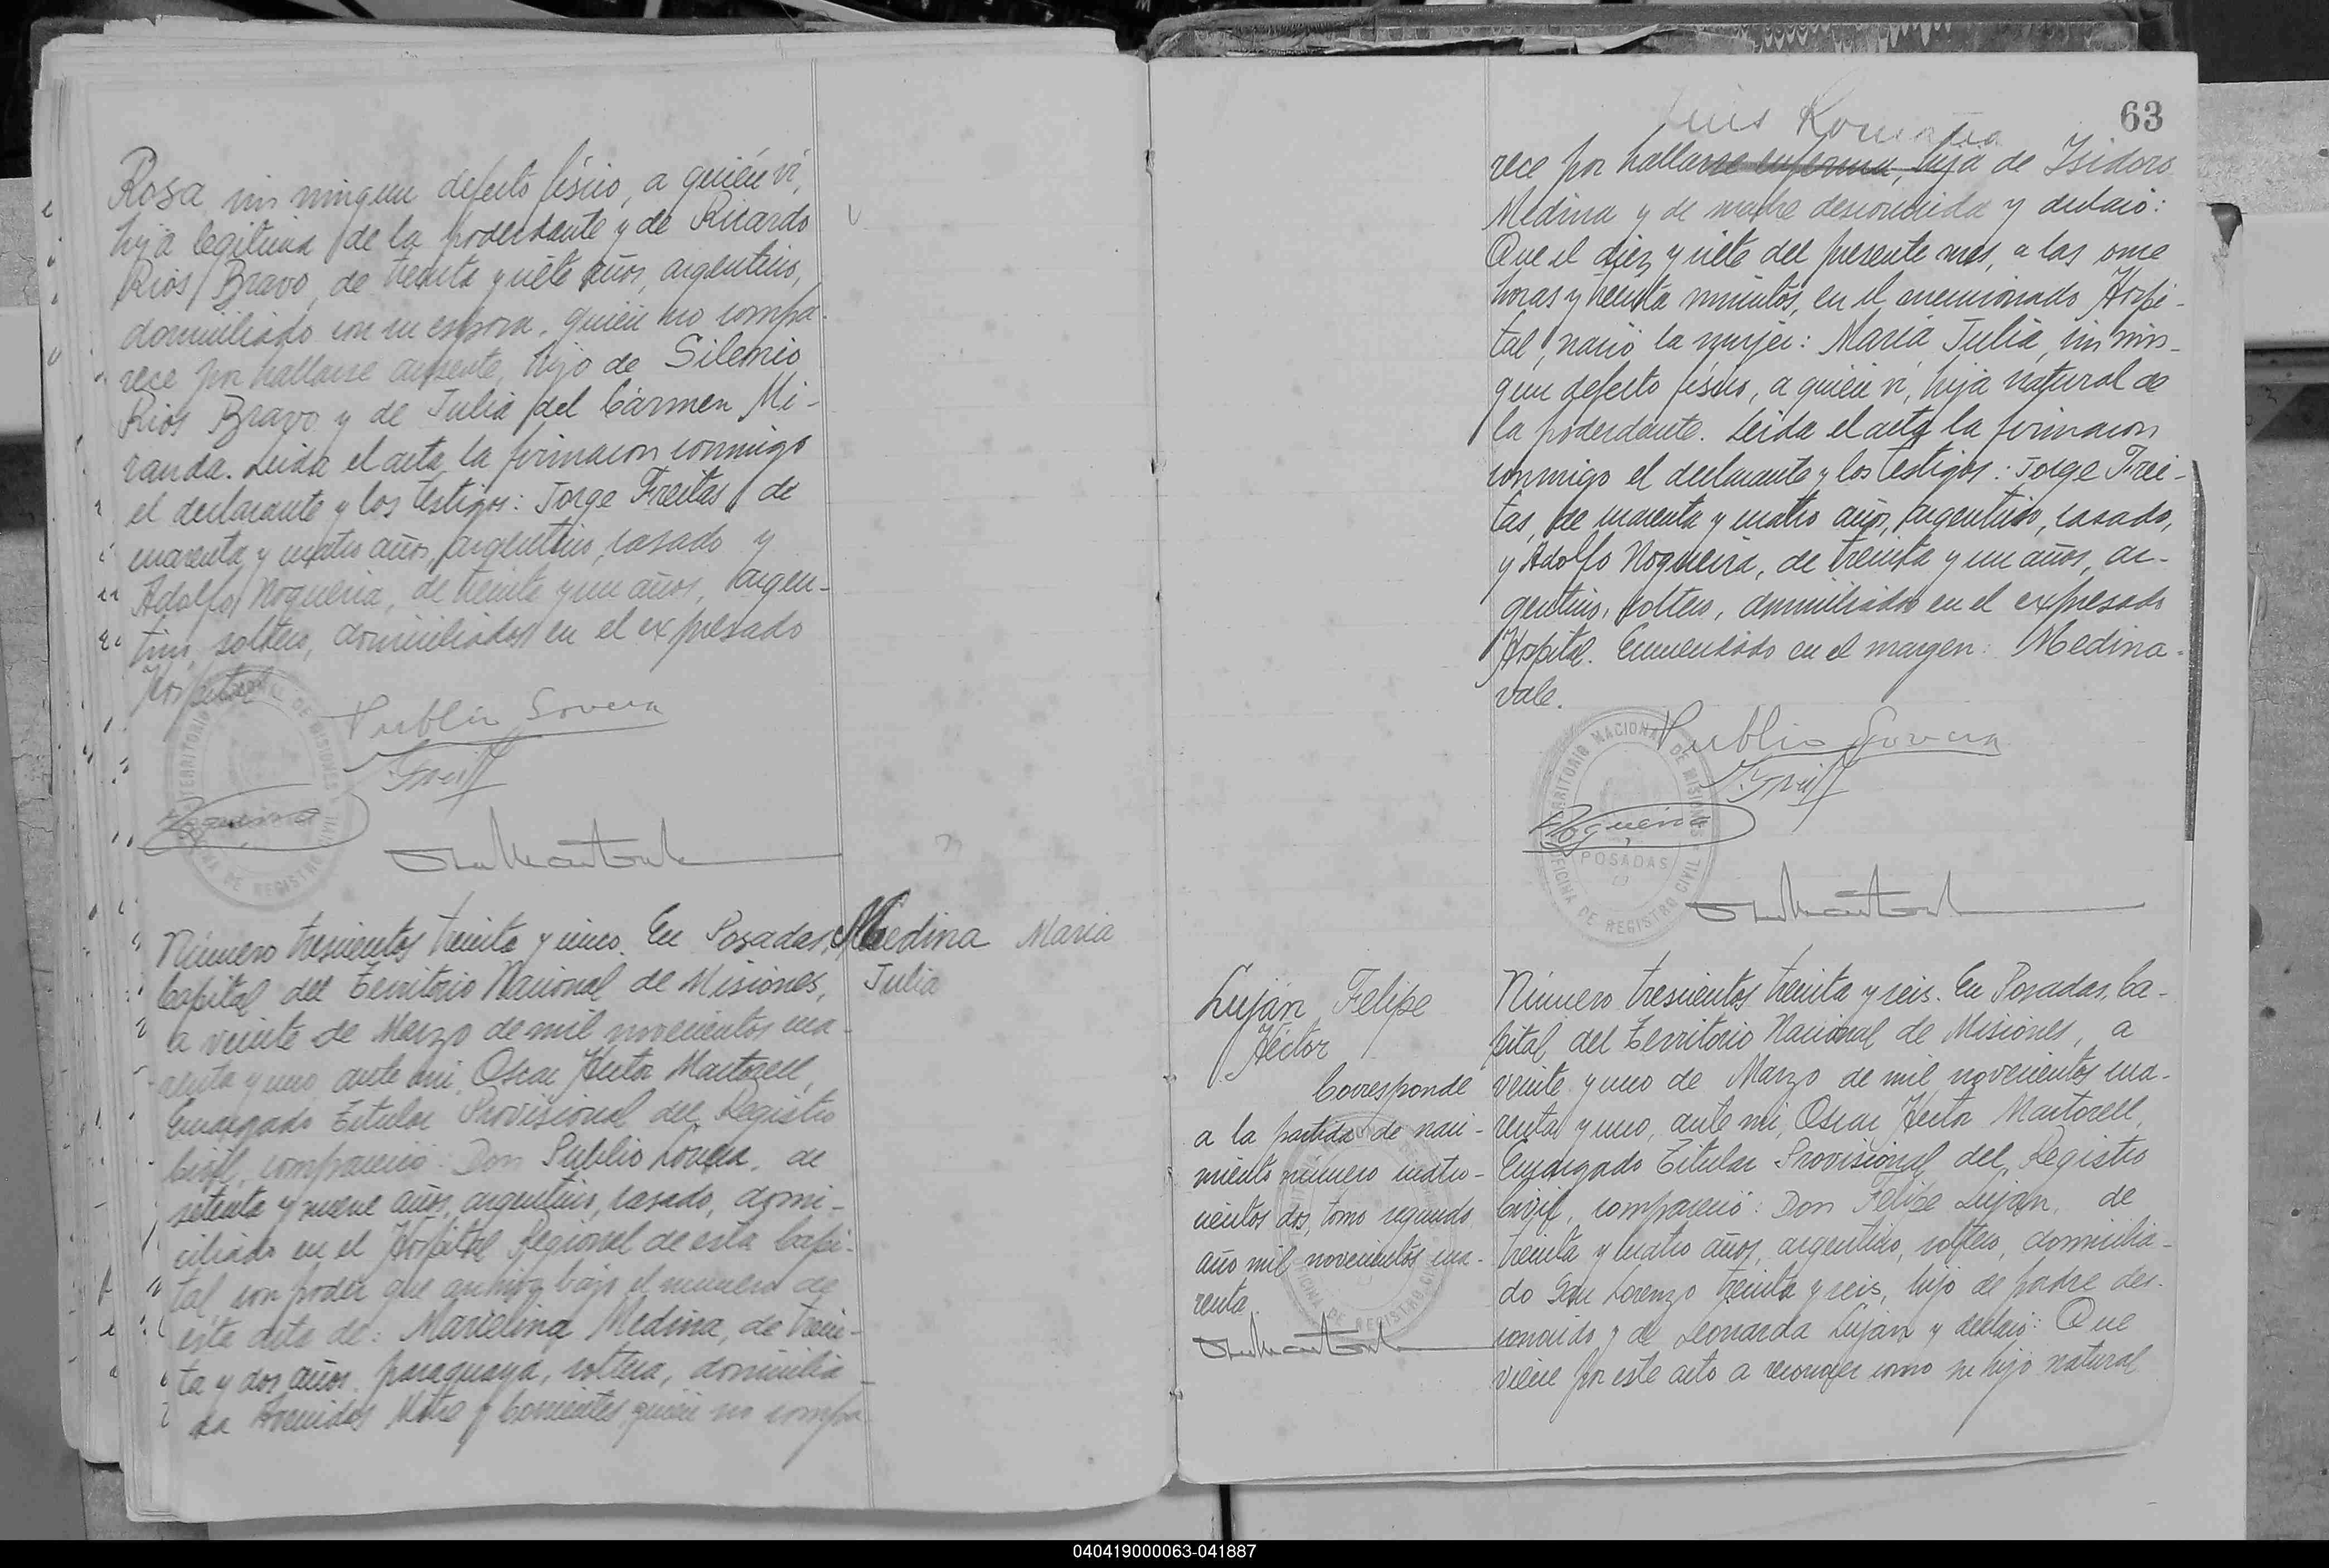 Rosa, sin ningun defecto fisico, a quién ví,
hija legitima de la poderdante y de Ricardo
Rios Bravo, de treinta y siete años, argentino,
domiliado con su esposa, quién no compa-
rece por hallarse ausente, hijo de Silenio
Rios Bravo y de Julia del Cármen Mi-
randa. Leida el acta la firmaron conmigo
el declarante y los testigos: Jorge Freitas, de
cuarenta y cuatro años, argentino, casado y
Adolfo Nogueira, de treinta y un años, argen-
tino, soltero, domiciliados en el expresado
Hospital
TERRITORIO DE MISIONES
DE REGISTRO CIVIL
Nogueira
Número trescientos treinta y cinco. En Posadas,
Capital del Territorio Nacional de Misiones,
a veinte de Marzo de mil novecientos cua-
renta y uno, ante mi, Oscar Hector Martorell,
Encargado Titular Provisional del Registro
Civil, compareció: Don Publio de
setenta y nueve años, argentino, casado, domi-
ciliado en el Hospital Regional de esta Capi-
tal, con poder que archivo bajo el numero de
este acta de: Marcelina Medina, de trein-
ta y dos años, paraguaya, soltera, domicilia-
da Avenidas Mitre y Corrientes quién no compa
Medina Maria
Julia
63
Luis
rece por hallarse enferma, hija de Isidoro
Medina y de madre desconocida y declaró:
Que el diez y siete del presente mes, a las once
horas y treinta minutos, en el mencionado Hospi-
tal, nació la mujer: María Julia, sin nin-
gun defecto fisico, a quién ví, hija natural de
la poderdante. Leida el acta la firmaron
conmigo el declarante y los testigos: Jorge Frei-
tas, de cuarenta y cuatro años, argentino, casado,
y Adolfo Nogueira, de treinta y un años, ar-
gentino, soltero, domiciliados en el expresado
Hospital. Enmendado en el margen: Medina-
vale.
TERRITORIO NACIONAL DE MISIONES
POSADAS
OFICINA DE REGISTRO CIVIL
Nogueira
Luján Felipe
Héctor
Corresponde
a la partida de naci-
miento número cuatro-
cientos dos, tomo segundo
año mil novecientos cua-
renta.
Número trescientos treinta y seis. En Posadas, Ca-
pital del Territorio Nacional de Misiones, a
veinte y uno de Marzo de mil novecientos cua-
renta y uno, ante mi, Oscar Hector Martorell,
Encargado Titular Provisional del Registro
Civil, compareció: Don Felipe Luján, de
treinta y cuatro años, argentino, soltero, domicilia-
do San Lorenzo treinta y seis, hijo de padre des-
conocido y de Leonarda Luján y declaró: Que
viene por este acto a reconocer como su hijo natural
040419000063-041887